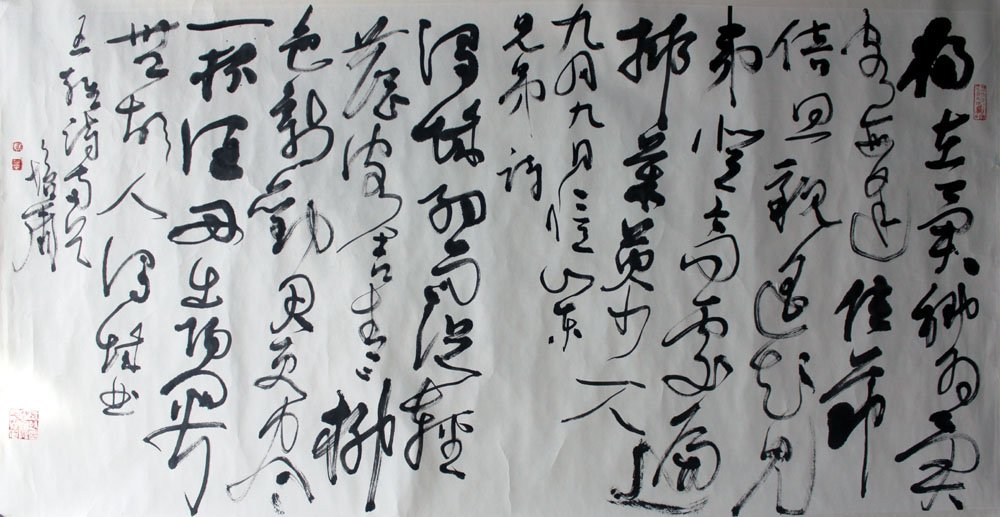 独在異鄉為異
客每逢佳節
倍思親遥知兄
弟登高處遍
插茱萸少一人
九月九日憶山东
兄弟詩
渭城朝雨浥輕
塵客舍青々柳
色新勸君更尽
一杯酒西出陽關
無故人渭城曲
王維詩两首